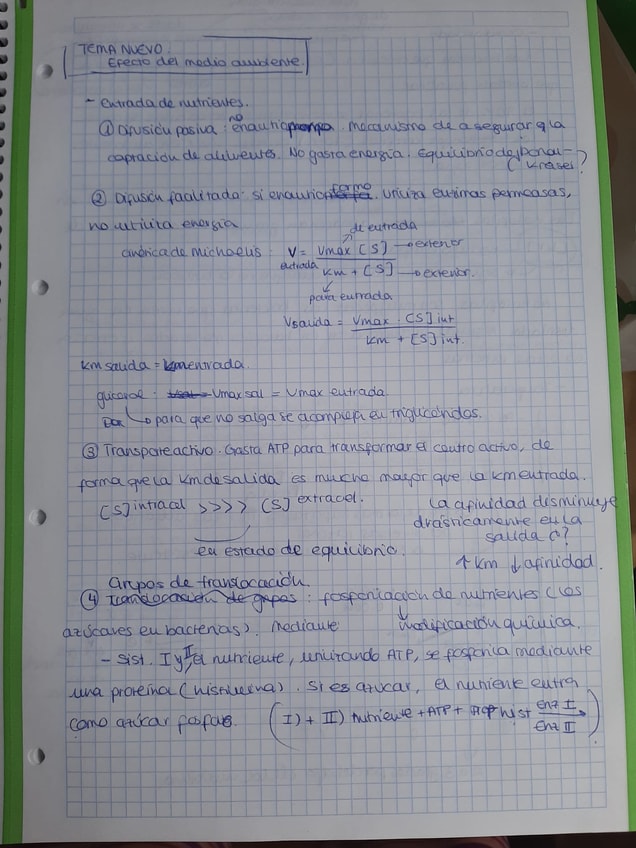 TEMA NUEVO.
Efecto del medio ambiente.
- Entrada de nutrientes.
① Difusión pasiva: no enantio. Mecanismo de asegurar q la
captación de alimentos. No gasta energía. Equilibrio de
② Difusión facilitada: si enantio termo. Utiliza enzimas permeasas,
no utiliza energía
de entrada
cinética de michaelis: V = Vmax [S] → exterior
entrada Km + [S] → exterior.
para entrada
Vsalida = Vmax · [S] int
Km + [S] int.
Km salida = Km entrada.
glicerol: Vmax sal = Vmax entrada
↳ para que no salga se acompleja en triglicéridos.
③ Transporte activo. Gasta ATP para transformar el centro activo, de
forma que la Km de salida es mucho mayor que la Km entrada.
[S] intracel >>>> [S] extracel.
en estado de equilibrio.
la afinidad disminuye
drásticamente en la
salida ?
↑ Km ↓ afinidad.
Grupos de translocación
④ Translocación de grupos: fosforilación de nutrientes (los
azúcares en bacterias). Mediante modificación química.
- Sist. I y II el nutriente, utilizando ATP, se fosforila mediante
una proteína (histidina). Si es azúcar, el nutriente entra
como azúcar fosfato. (I) + II) nutriente + ATP + hist enz I
enz II